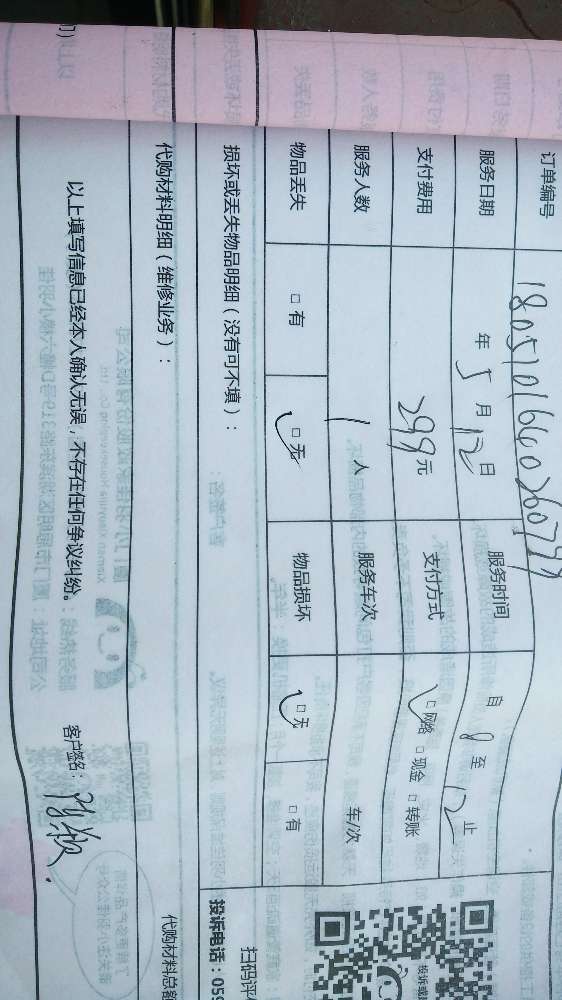 订单编号 180510166402607
服务日期 年5月12日 服务时间 自8至12止
支付费用 299元 支付方式 □网络 □现金 □转账
服务人数 1人 服务车次 车/次
物品丢失 □有 □无 物品损坏 □无 □有
损坏或丢失物品明细（没有可不填）：
代购材料明细（维修业务）：
代购材料总额
以上填写信息已经本人确认无误，不存在任何争议纠纷。
客户签名：
扫码评
投诉电话：059